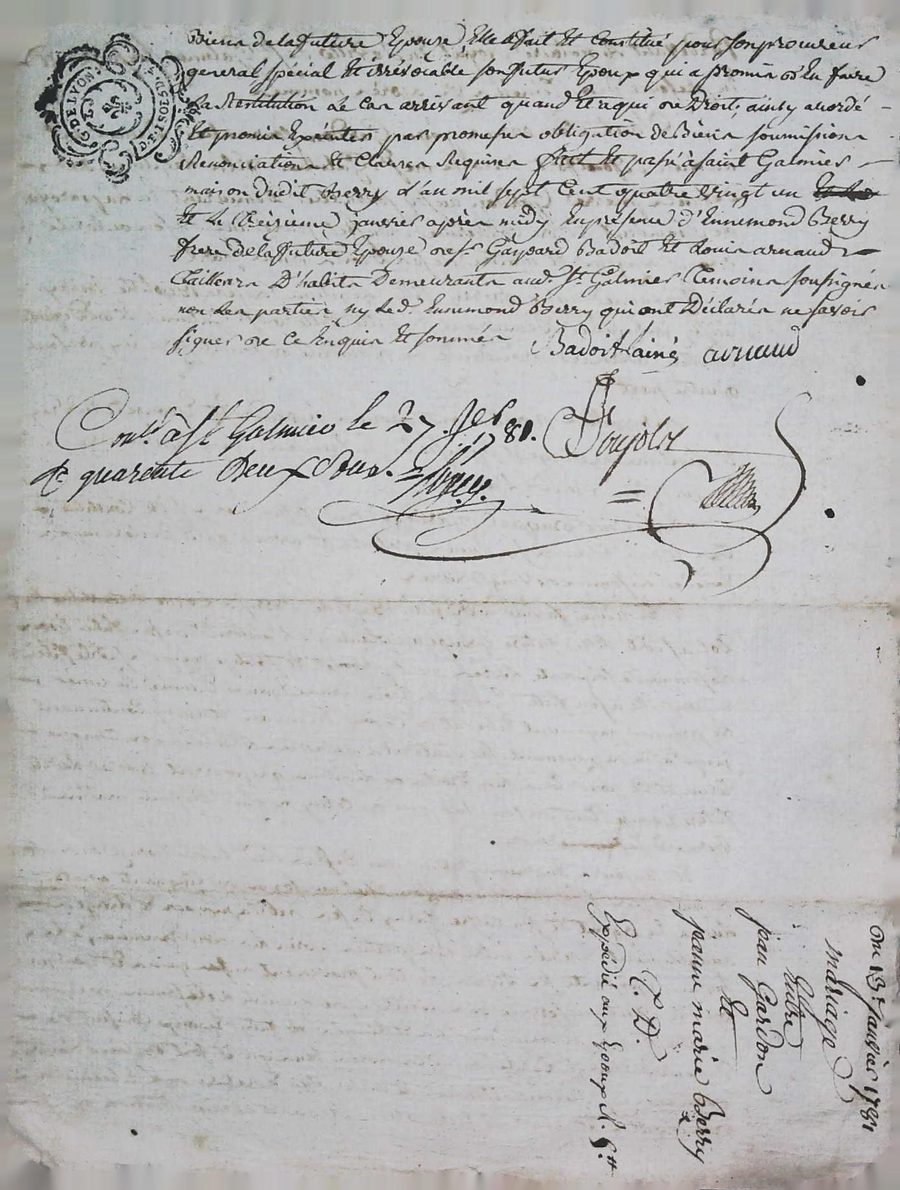 Biens de la future Epouse, Elle a fait Et Constitué pour son procureur
general spécial Et irrévocable son futur Epoux qui a promis d'En faire
La Restitution Le Cas arrivant quand Et a qui de Droit, ainsy accordé
Et promis Exécuter par promesse obligation de Biens soumissions
Renonciations Et Clauses Requises fait Et passé a saint Galmier
maison dudit Berry L'an mil sept Cent quatre vingt un
Et Le treizieme janvier après midy En presence d'Ennemond Berry
frere de la future Epouse de sr. Gaspard Badoil Et Louis arnaud
tailleurs D'habits Demeurants aud. St. Galmier temoins soussignés
non Les parties ny Led. Ennemond Berry qui ont Déclarés ne savoir
signer de Ce Enquis Et sommés Badoit lainé arnaud
Conlé a St Galmier le 27 Jer 1781.
R. quarente deux sous
on 13e. Janvier 1781
mariage
Entre
jean Gardon
Et
jeanne marie Berry
C. D.
Expédié aux Epoux